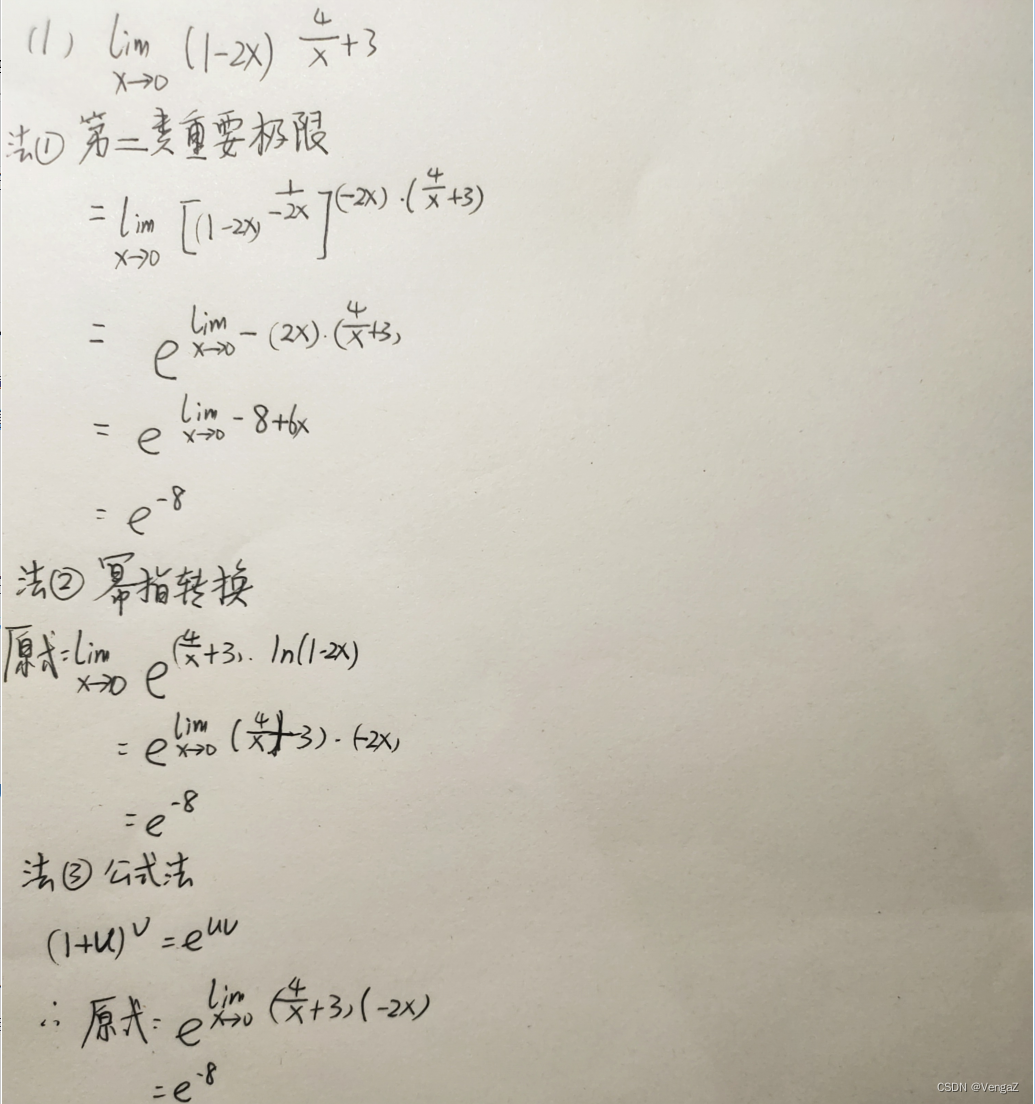 (1) lim x→0 (1-2x) 4/x+3
法① 第二类重要极限
= lim x→0 [(1-2x) 1/-2x] (-2x)·(4/x+3)
= e lim x→0 -(2x)·(4/x+3)
= e lim x→0 -8+6x
= e -8
法② 幂指转换
原式=lim x→0 e (4/x+3)· ln(1-2x)
= e lim x→0 (4/x+3)·(-2x)
= e -8
法③ 公式法
(1+u)ᵛ = eᵘᵛ
∴ 原式= e lim x→0 (4/x+3)(-2x)
= e -8
CSDN @VengaZ